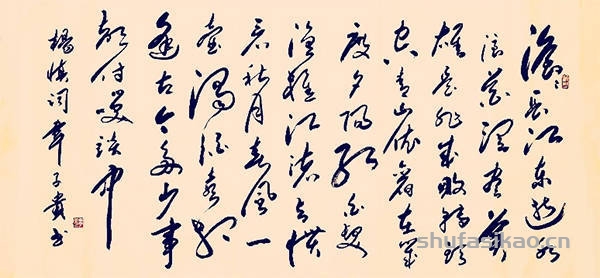 滚滚长江东逝水
浪花淘尽英
雄是非成败转头
空青山依旧在几
度夕阳红白发
渔樵江渚上惯
看秋月春风一
壶浊酒喜相
逢古今多少事
都付笑谈中
杨慎词 韦子贵书
shufasikao.cn